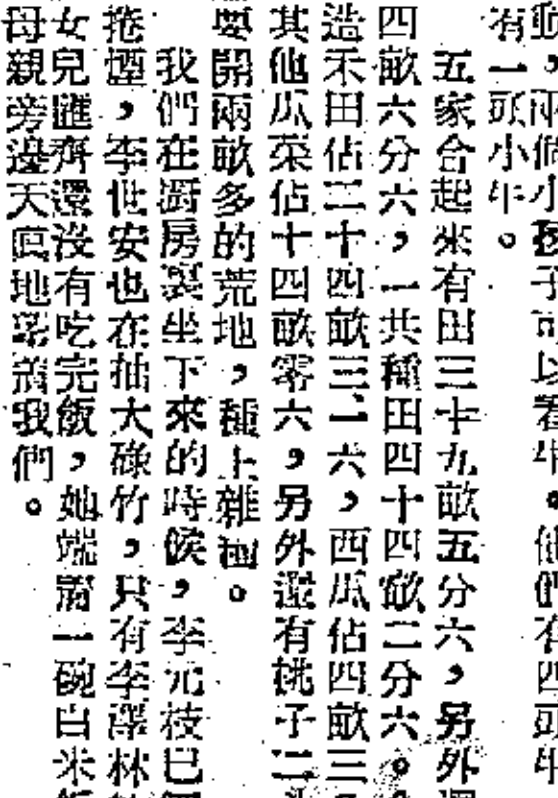 動，兩個小孩子可以看牛。他們有四頭牛
有一頭小牛。
五家合起來有田三十九畝五分六，另外還
四畝六分六，一共種田四十四畝二分六。
造禾田佔二十四畝三二六，西瓜佔四畝三
其他瓜菜佔十四畝零六，另外還有桃子二
要開兩畝多的荒地，種上雜糧。
我們在廚房裏坐下來的時候，李元枝已
捲煙，李世安也在抽大碌竹，只有李澤林
女兒匯齊還沒有吃完飯，她端着一碗白米飯
母親旁邊天真地望着我們。